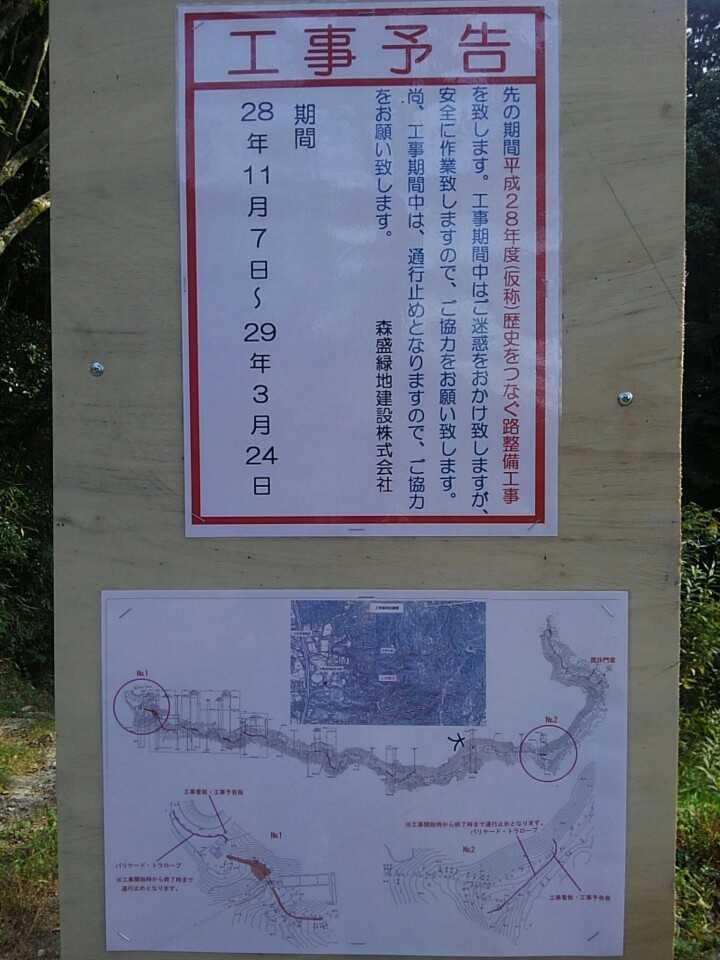 工事予告
先の期間平成28年度(仮称)歴史をつなぐ路整備工事
を致します。工事期間中はご迷惑をおかけ致しますが、
安全に作業致しますので、ご協力をお願い致します。
尚、工事期間中は、通行止めとなりますので、ご協力
をお願い致します。
森盛緑地建設株式会社
期間
28年11月7日～29年3月24日
No.1
毘沙門堂
No.2
大
工事看板・工事予告板
No.1
バリケード・トラロープ
※工事開始時から終了時まで
通行止めとなります。
※工事開始時から終了時まで通行止めとなります。
バリケード・トラロープ
No.2
工事看板・工事予告板